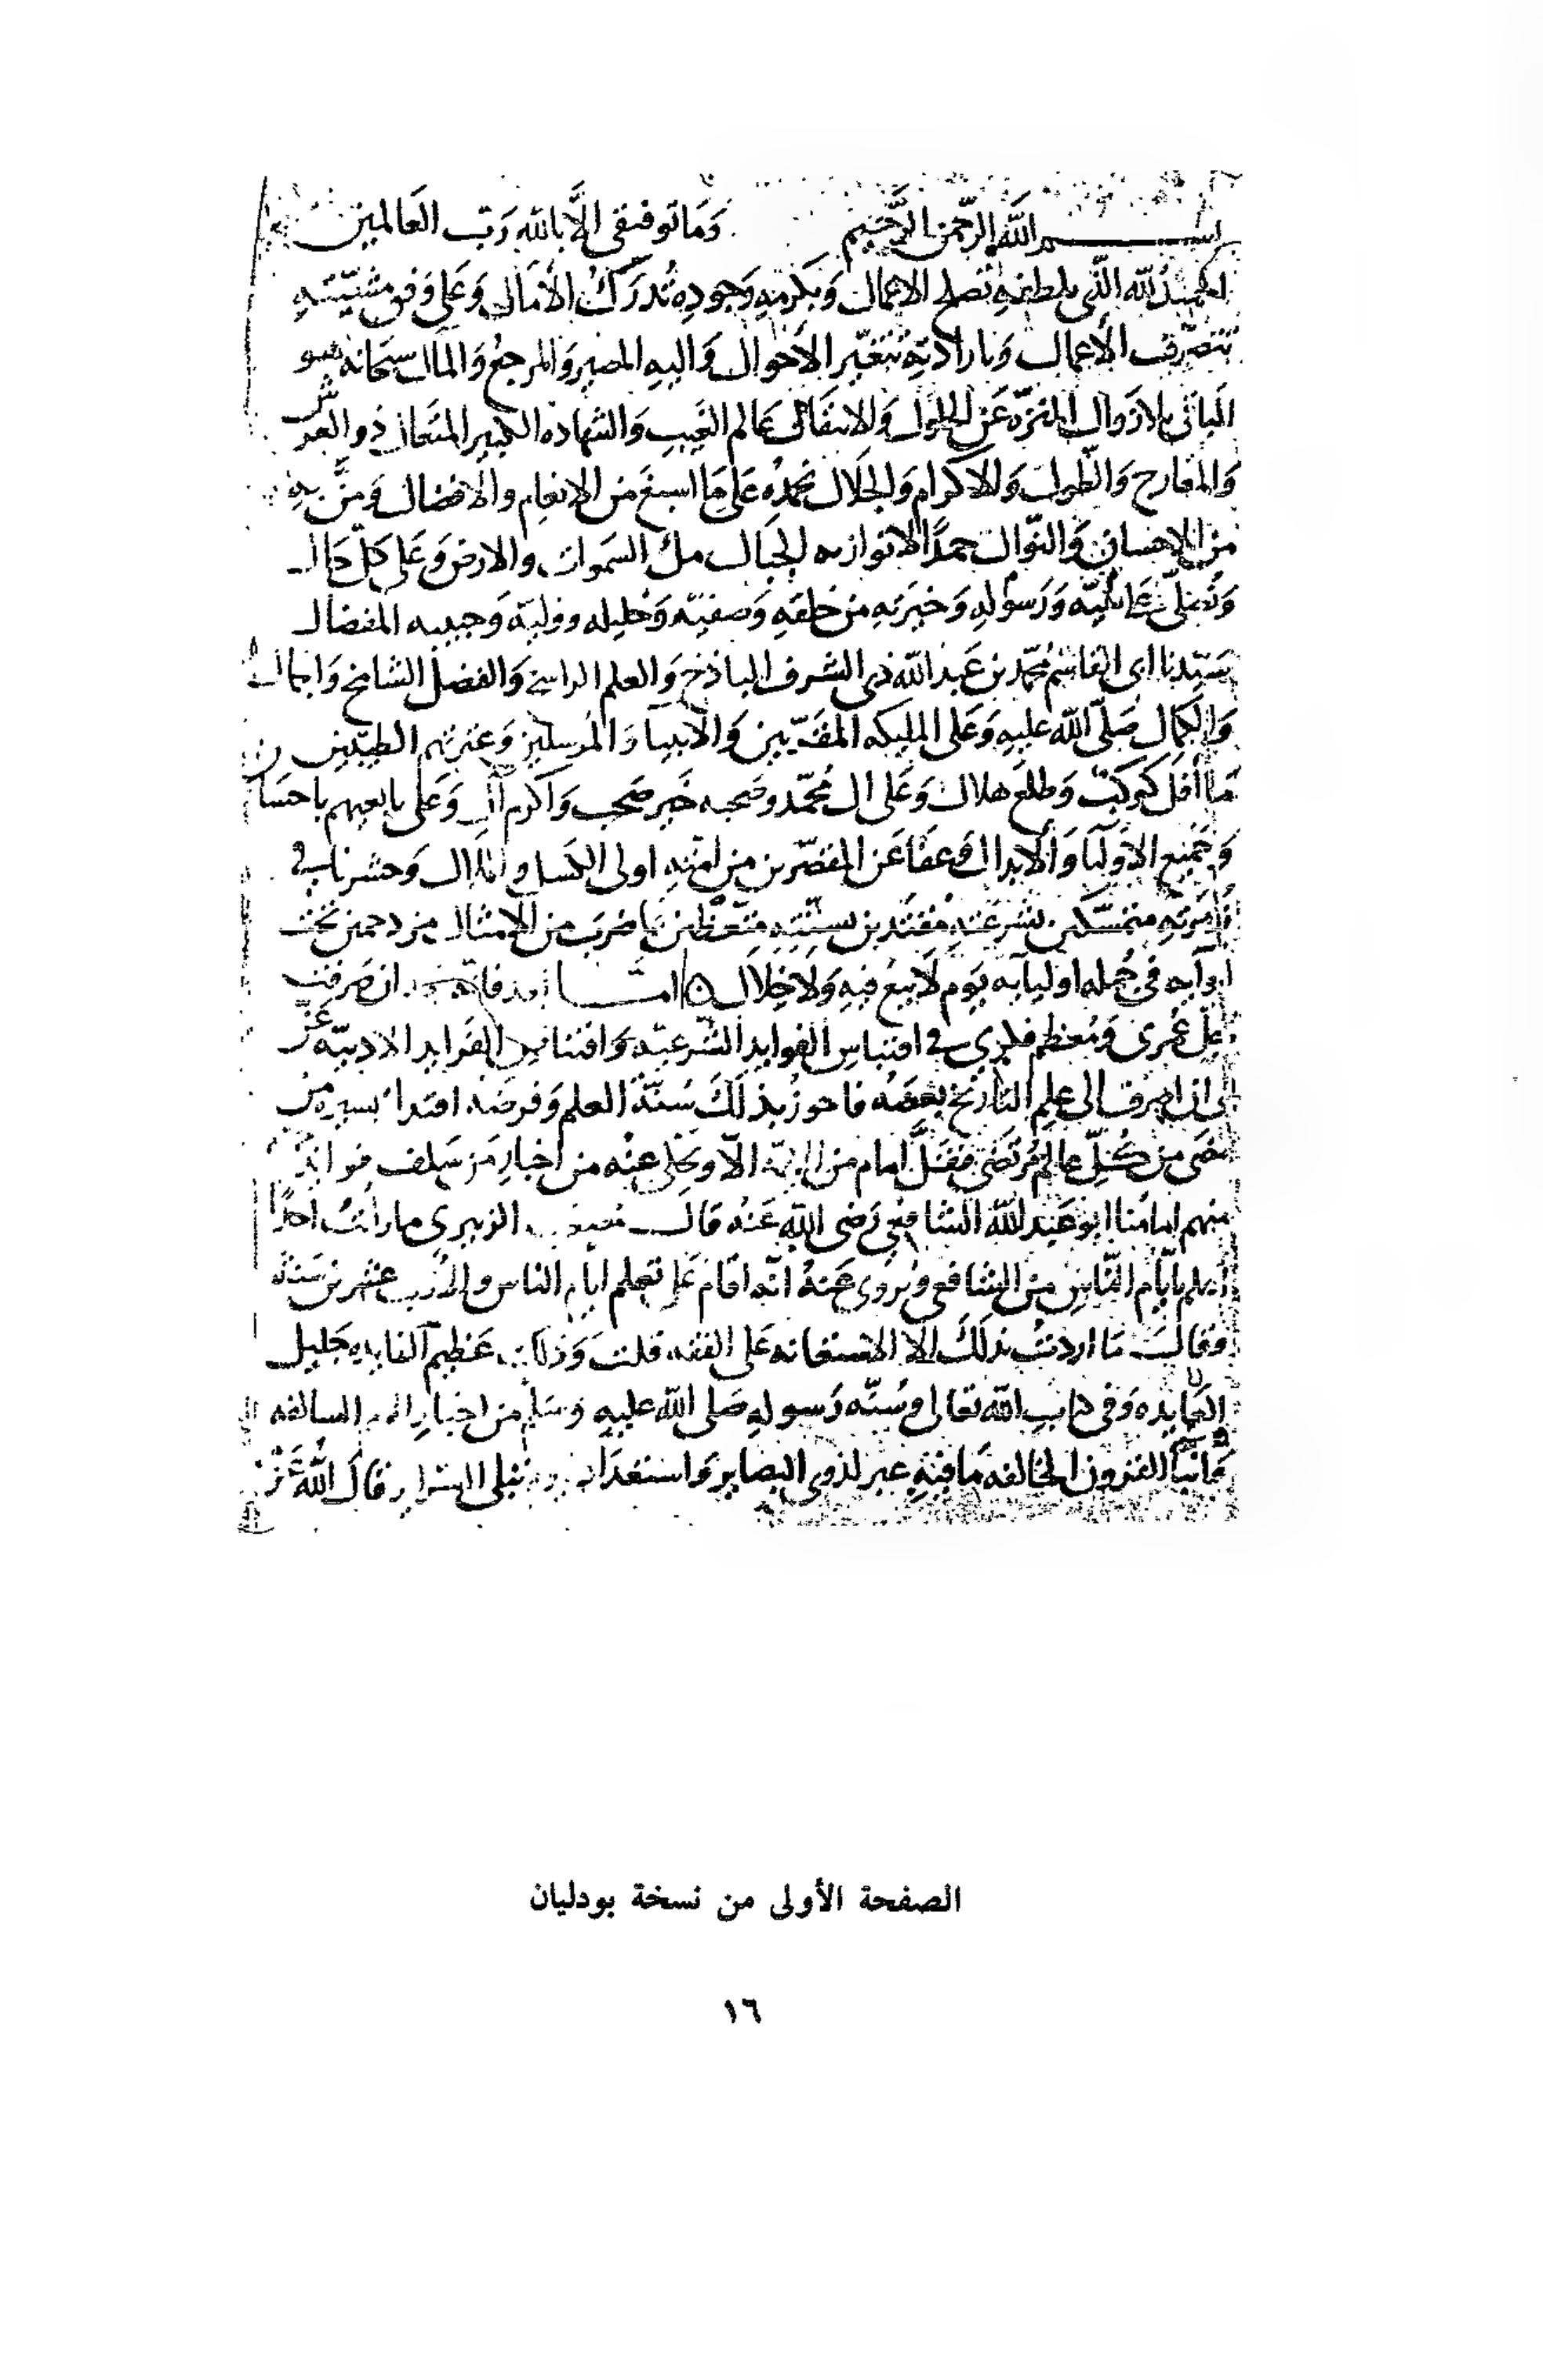 بسم الله الرحمن الرحيم وَمَا توفيقي الَّا بالله رَبّ العَالمين
الحمدُ لله الذي بلطفهِ تصلح الاعمال وَبكرمهِ وَجودِه تُدرَكُ الآمَال وَعَلى وَفق مشيّئتهِ
تتصرّف الأعمال وَبارادتهِ تتغيّر الأحوال وَاليهِ المصير وَالمرجعُ وَالمآل سبحانه هو
الباقي بلا زوال المنزّه عَن الحلول وَالانتقال عَالم الغَيبِ وَالشهاده الكبير المتعال ذو العَرش
وَالمعارج وَالطول وَالاكرام وَالجلَال نحمدُه عَلى مَا اسبغَ من الانعام والافضال وَمَنَّ به
من الاحسان وَالنّوال حمدًا لا توازيه الجبَال ملء السَموات والارض وَعَلى كلّ حَال
وَنُصَلّي عَلى نبيّه وَرَسُولهِ وَخيرَتهِ من خلقهِ وَصفيّه وَخليله ووليّه وَحبيبه المفضال
سَيّدنا ابى القاسم محمّد بن عَبد الله ذي الشرف الباذخ وَالعلم الراسخ وَالفضل الشامخ وَالجمال
وَالكمَال صَلّى الله عليهِ وَعَلى المليكه المقرّبين وَالانبيا وَالمُرسلين وَعترتهم الطيّبين
مَا أفَل كوكبٌ وَطلعَ هلال وَعَلى ال مُحمّد وصَحبه خَير صَحب وَاكرم آل وَعَلى تابعيهم باحسَان
وَجَميع الاوليَا وَالابدال وعفَا عَن المقصّرين من امّتهِ اولى الكسَل والملال وَحشرنا في
زُمرَتهِ متمسّكين بشرعَتهِ مُقتَدين بسنّتهِ متّعظين بما ضربَ من الامثال مزدحمين تحت
لوآيه في جُمله اوليآيه يَوم لَا بيعٌ فيهِ وَلَا خِلَال امّا بعد فانّى بعد ان صَرفت
جُلّ عُمري وَمُعظم فكري في اقتباس الفوايد الشرعيّه وَاقتناص الفَرايد الادبيّه عَنَّ
لى ان اصرف الى علم التاريخ بعضَه فاحوزُ بذلكَ سُنّة العلم وَفرضَه اقتداءً بسيره من
مضَى من كُلِّ عالم مُرتضَى فقلَّ امام من الايمّه الّا وَحكى عنْه من اخبارِ مَن سَلف فوائد
منهم امامُنا ابو عَبد الله الشافعي رَضى الله عَنه قال مصعب الزبيرى ما رايتُ احدًا
اعلم بأيّام النّاس من الشافعي وَيروَى عَنهُ انّه اقَام عَلى تعلم ايام الناس والادب عشرين سَنة
وقال مَا اردتُ بذلكَ الا الاستعانه عَلى الفقه قلت وَذلك عَظيم الفايده جَليل
العَايده وَفي كتابِ الله تعَالى وسُنّه رَسوله صَلى الله عليه وسَلم من اخبار الامم السالفه
وَانبَا القرُون الخالفه مَا فيهِ عبر لذوي البصاير وَاستعدَاد ليوم تبلى السراير قال الله عَزّ
الصفحة الأولى من نسخة بودليان
١٦